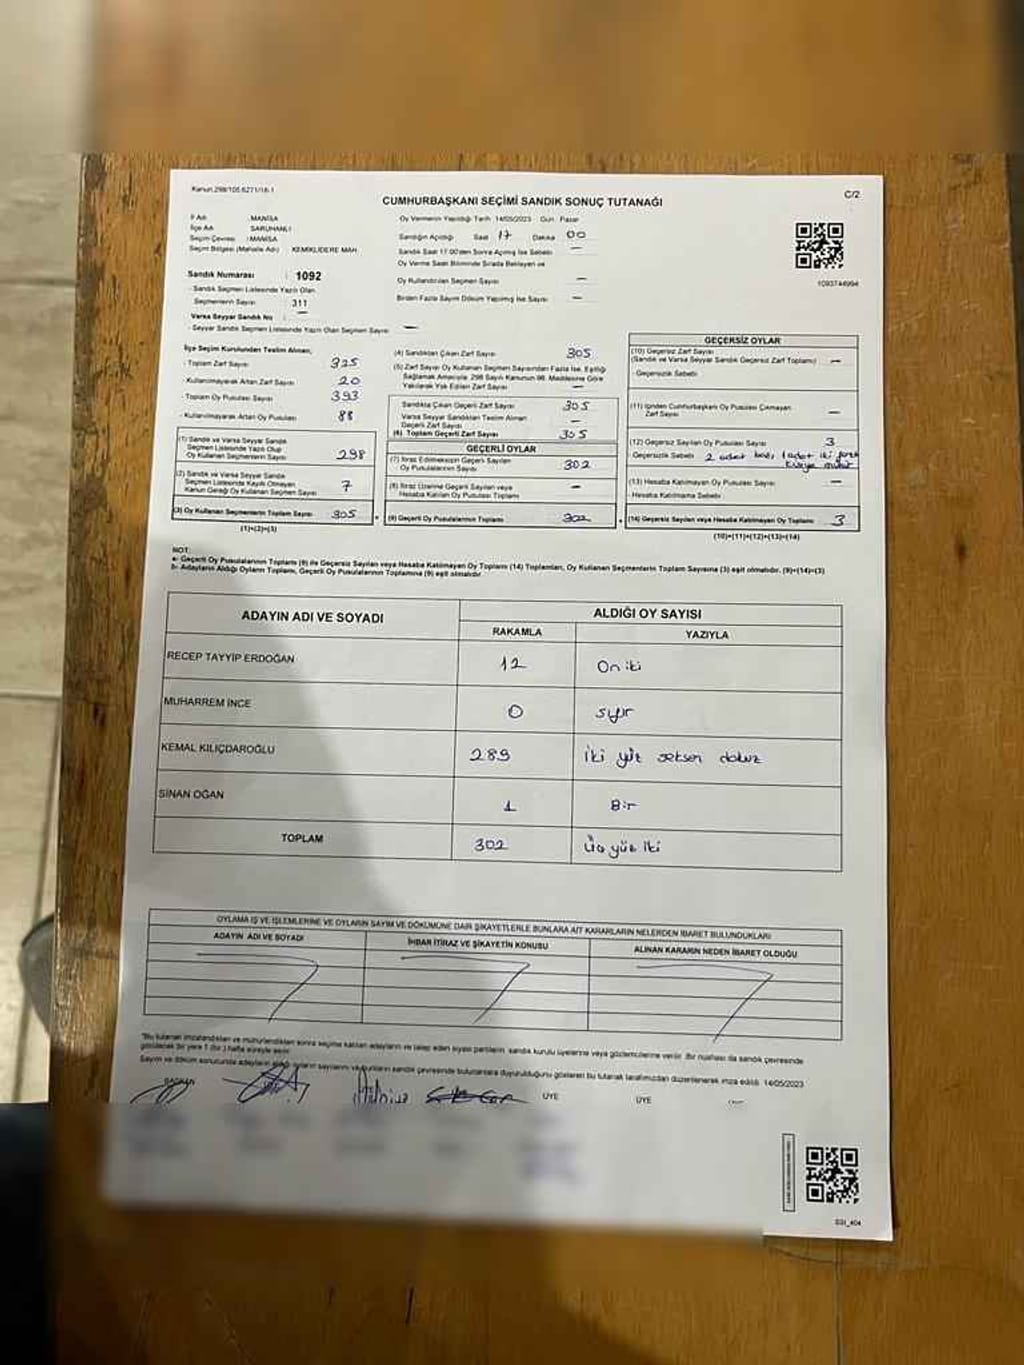 Kanun.298/105.6271/16-1
C/2
CUMHURBAŞKANI SEÇİMİ SANDIK SONUÇ TUTANAĞI
İl Adı : MANİSA
İlçe Adı : SARUHANLI
Seçim Çevresi : MANİSA
Seçim Bölgesi (Mahalle Adı) : KEMİKLİDERE MAH.
Sandık Numarası : 1092
- Sandık Seçmen Listesinde Yazılı Olan
Seçmenlerin Sayısı : 311
Varsa Seyyar Sandık No : —
- Seyyar Sandık Seçmen Listesinde Yazılı Olan Seçmen Sayısı : —
Oy Vermenin Yapıldığı Tarih 14/05/2023 Gün : Pazar
Sandığın Açıldığı Saat 17 Dakika 00
Sandık Saat 17:00'den Sonra Açılmış İse Sebebi —
Oy Verme Saati Bitiminde Sırada Bekleyen ve
Oy Kullandırılan Seçmen Sayısı —
Birden Fazla Sayım Döküm Yapılmış İse Sayısı —
1093744994
İlçe Seçim Kurulundan Teslim Alınan;
- Toplam Zarf Sayısı 325
- Kullanılmayarak Artan Zarf Sayısı 20
- Toplam Oy Pusulası Sayısı 393
- Kullanılmayarak Artan Oy Pusulası 88
(1) Sandık ve Varsa Seyyar Sandık
Seçmen Listesinde Yazılı Olup
Oy Kullanan Seçmenlerin Sayısı 298
(2) Sandık ve Varsa Seyyar Sandık
Seçmen Listesinde Kayıtlı Olmayan
Kanun Gereği Oy Kullanan Seçmen Sayısı 7
(3) Oy Kullanan Seçmenlerin Toplam Sayısı 305
(1)+(2)=(3)
(4) Sandıktan Çıkan Zarf Sayısı 305
(5) Zarf Sayısı Oy Kullanan Seçmen Sayısından Fazla İse, Eşitliği
Sağlamak Amacıyla, 298 Sayılı Kanunun 98. Maddesine Göre
Yakılarak Yok Edilen Zarf Sayısı —
Sandıkta Çıkan Geçerli Zarf Sayısı 305
Varsa Seyyar Sandıktan Teslim Alınan
Geçerli Zarf Sayısı —
(6) Toplam Geçerli Zarf Sayısı 305
GEÇERLİ OYLAR
(7) İtiraz Edilmeksizin Geçerli Sayılan
Oy Pusulalarının Sayısı 302
(8) İtiraz Üzerine Geçerli Sayılan veya
Hesaba Katılan Oy Pusulası Toplamı —
(9) Geçerli Oy Pusulalarının Toplamı 302
GEÇERSİZ OYLAR
(10) Geçersiz Zarf Sayısı
(Sandık ve Varsa Seyyar Sandık Geçersiz Zarf Toplamı) —
- Geçersizlik Sebebi
(11) İçinden Cumhurbaşkanı Oy Pusulası Çıkmayan
Zarf Sayısı —
(12) Geçersiz Sayılan Oy Pusulası Sayısı 3
- Geçersizlik Sebebi 2 adet boş, 1 adet iki farklı
kişiye mühür
(13) Hesaba Katılmayan Oy Pusulası Sayısı —
- Hesaba Katılmama Sebebi
(14) Geçersiz Sayılan veya Hesaba Katılmayan Oy Toplamı 3
(10)+(11)+(12)+(13)=(14)
NOT:
a- Geçerli Oy Pusulaları Toplamı (9) ile Geçersiz Sayılan veya Hesaba Katılmayan Oy Toplamı (14) Toplamları, Oy Kullanan Seçmenlerin Toplam Sayısına (3) eşit olmalıdır. (9)+(14)=(3)
b- Adayların Aldığı Oyların Toplamı, Geçerli Oy Pusulalarının Toplamına (9) eşit olmalıdır.
ADAYIN ADI VE SOYADI
ALDIĞI OY SAYISI
RAKAMLA YAZIYLA
RECEP TAYYİP ERDOĞAN 12 On iki
MUHARREM İNCE 0 sıfır
KEMAL KILIÇDAROĞLU 289 iki yüz seksen dokuz
SİNAN OĞAN 1 Bir
TOPLAM 302 Üç yüz iki
OYLAMA İŞ VE İŞLEMLERİNE VE OYLARIN SAYIM VE DÖKÜMÜNE DAİR ŞİKAYETLERLE BUNLARA AİT KARARLARIN NELERDEN İBARET BULUNDUKLARI
ADAYIN ADI VE SOYADI
İHBAR İTİRAZ VE ŞİKAYETİN KONUSU
ALINAN KARARIN NEDEN İBARET OLDUĞU
"Bu tutanak imzalandıktan ve mühürlendikten sonra seçime katılan adayların ve talep eden siyasi partilerin sandık kurulu üyelerine veya gözlemcilerine verilir. Bir nüshası da sandık çevresinde
görülecek bir yere 1 (bir) hafta süreyle asılır.
Sayım ve döküm sonucunda adayların aldığı oyların sayılarını ve bunların sandık çevresinde bulunanlara duyurulduğunu gösteren bu tutanak tarafımızdan düzenlenerek imza edildi. 14/05/2023
BAŞKAN
ÜYE
ÜYE
SSI_404